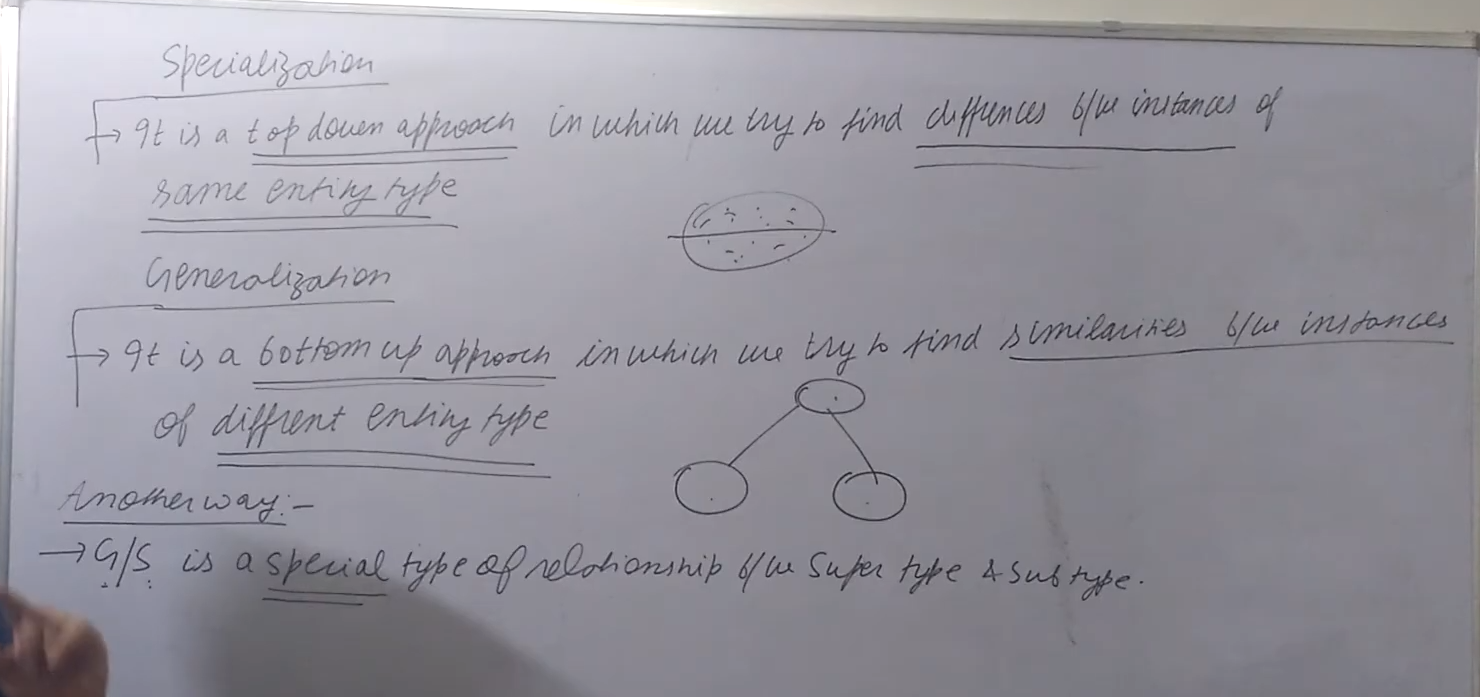 Specialization
→ It is a top down approach in which we try to find diffrences b/w instances of
same entity type
Generalization
→ It is a bottom up approach in which we try to find similarities b/w instances
of diffrent entity type
Another way:-
→ G/S is a special type of relationship b/w Super type & Sub type.